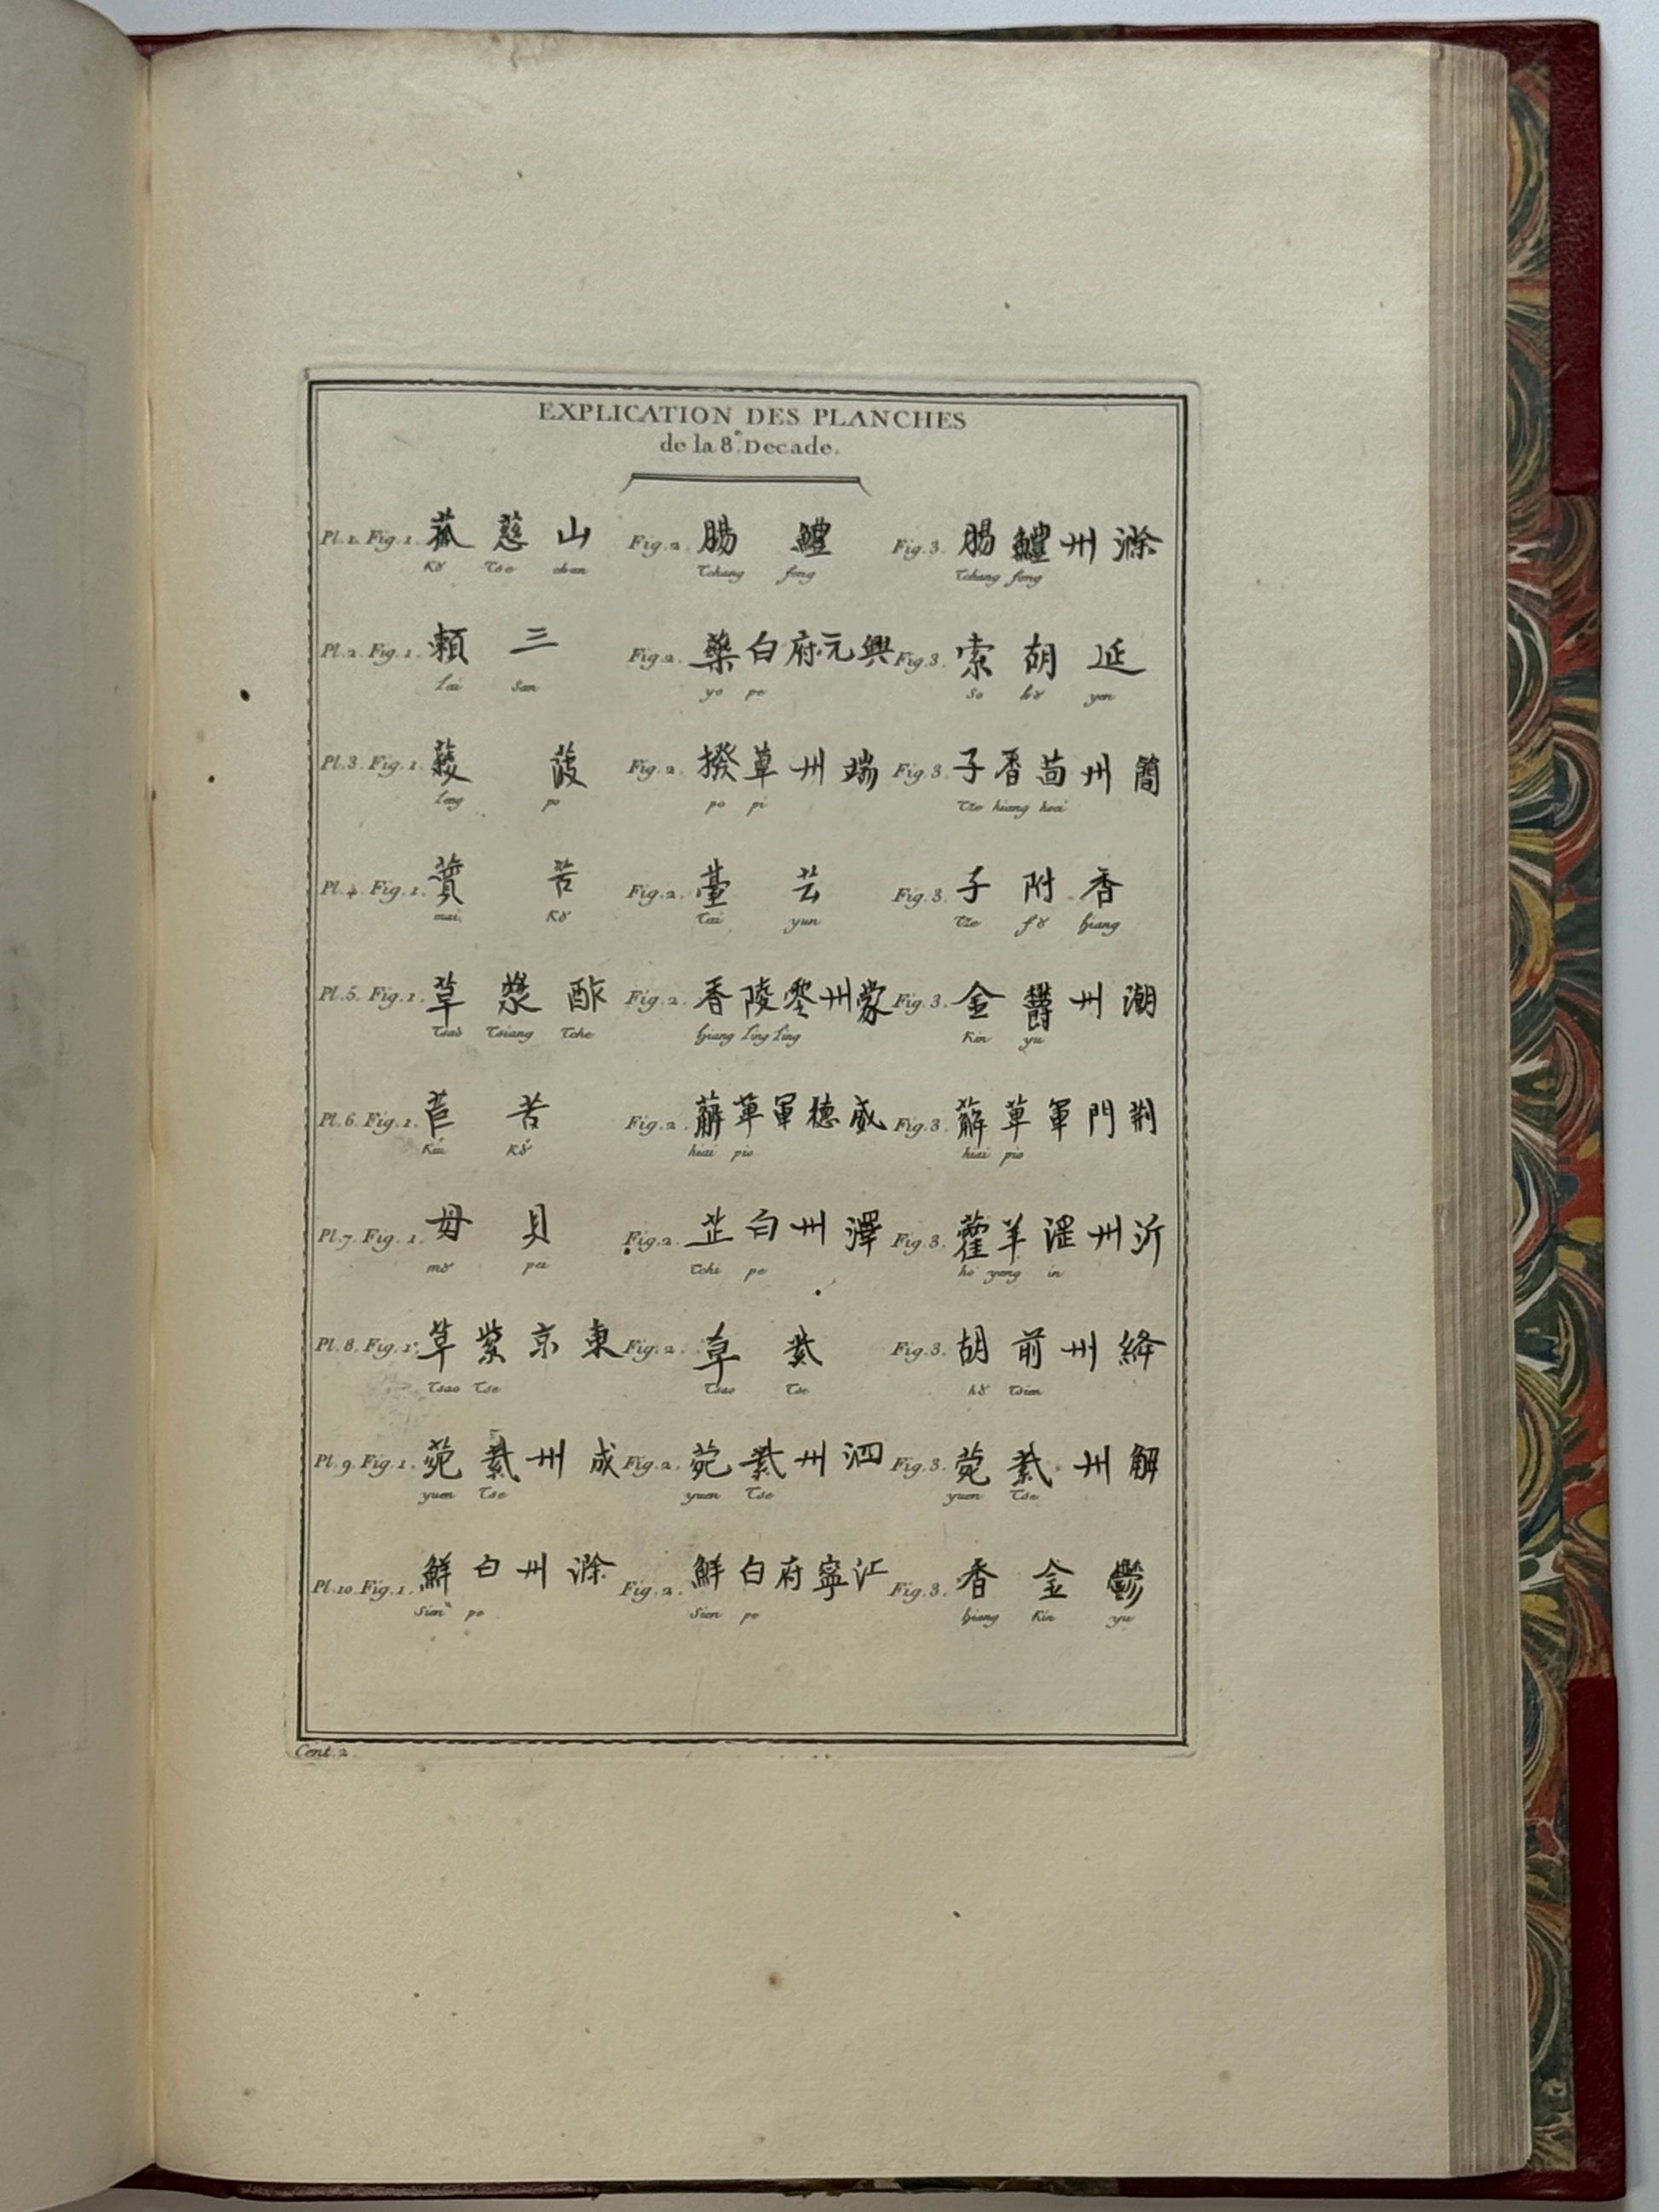 EXPLICATION DES PLANCHES
de la 8.e Decade.
Pl.1. Fig.1. 菰 慈 山 Fig.2. 腸 鱧 Fig.3. 腸 鱧 州 滁
Kȣ Tse chan Tchang fong Tchang fong
Pl.2. Fig.1. 賴 三 Fig.2. 藥 白 府 元 興 Fig.3. 索 胡 延
Lai San yo pe So hȣ yen
Pl.3. Fig.1. 薐 菠 Fig.2. 撥 草 州 端 Fig.3. 子 香 茴 州 簡
Leng po po pi Tze hiang hoei
Pl.4. Fig.1. 蕒 苦 Fig.2. 薹 芸 Fig.3. 子 附 香
mai Kȣ Tai yun Tze fȣ hiang
Pl.5. Fig.1. 草 漿 酢 Fig.2. 香 陵 零 州 蒙 Fig.3. 金 鬱 州 潮
Tsao Tsiang Tche hiang Ling Ling Kin yu
Pl.6. Fig.1. 苣 苦 Fig.2. 薢 草 軍 德 威 Fig.3. 薢 草 軍 門 荆
Kiu Kȣ hiai pio hiai pio
Pl.7. Fig.1. 母 貝 Fig.2. 芷 白 州 澤 Fig.3. 藿 羊 淫 州 沂
mȣ pei Tchi pe ho yang in
Pl.8. Fig.1. 草 紫 京 東 Fig.2. 草 紫 Fig.3. 胡 前 州 絳
Tsao Tse Tsao Tse hȣ Tsien
Pl.9. Fig.1. 菀 紫 州 成 Fig.2. 菀 紫 州 泗 Fig.3. 菀 紫 州 解
yuen Tse yuen Tse yuen Tse
Pl.10. Fig.1. 鮮 白 州 滁 Fig.2. 鮮 白 府 寧 江 Fig.3. 香 金 鬱
Sien pe Sien pe hiang Kin yu
Cent. 2.